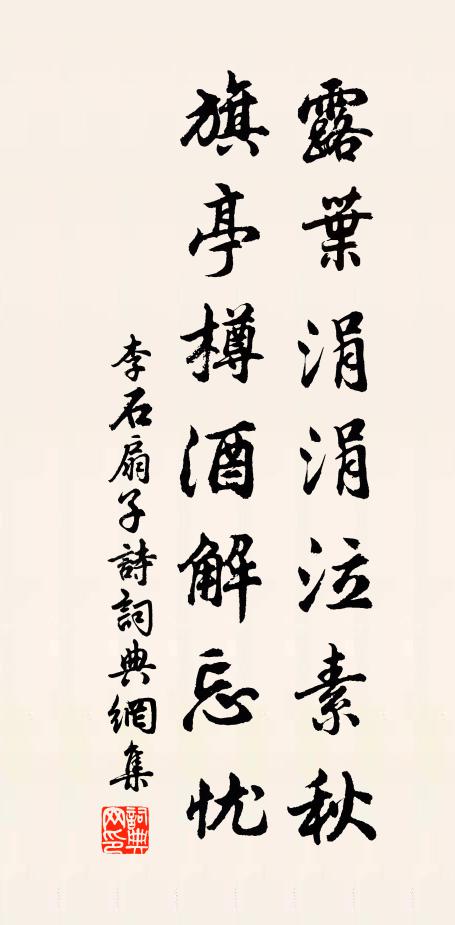 露葉涓涓泣素秋
旗亭樽酒解忘忧
李石扇子詩詞典網集
詞典网印